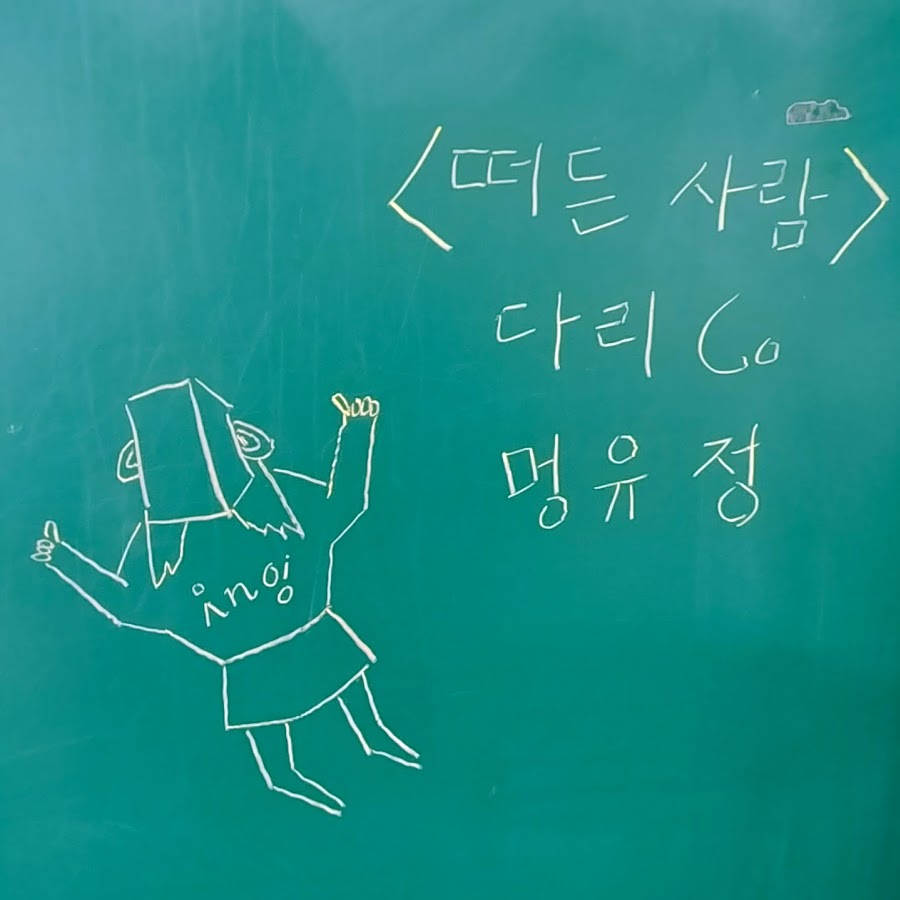 <떠든 사람>
다리 Co
멍유정